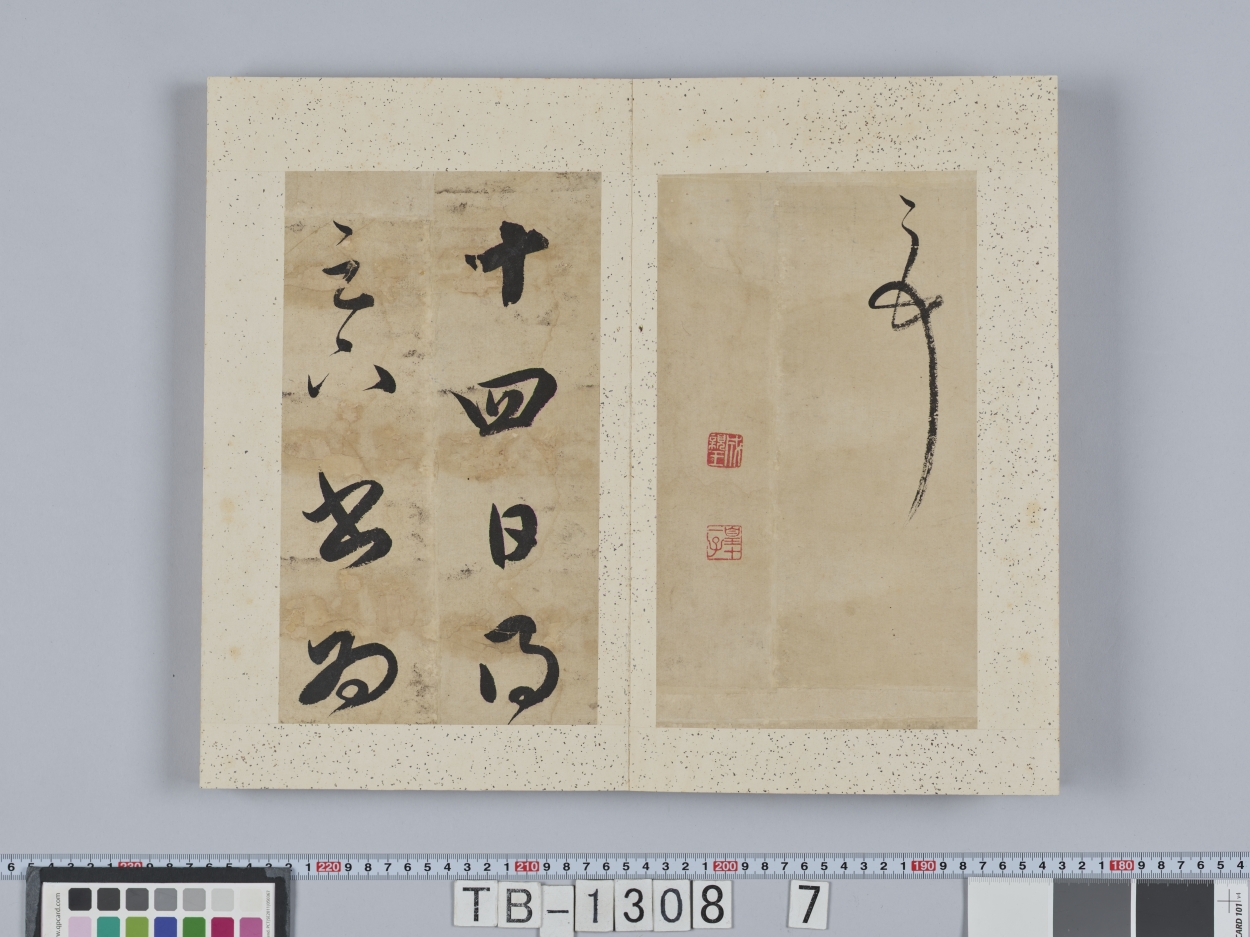 成親王
皇十一子
十四日得
六書為
6 5 4 3 2 1 230 9 8 7 6 5 4 3 2 1 220 9 8 7 6 5 4 3 2 1 210 9 8 7 6 5 4 3 2 1 200 9 8 7 6 5 4 3 2 1 190 9 8 7 6 5 4 3 2 1 180 9 8 7 6 5 4
TB-1308 7
CARD 101